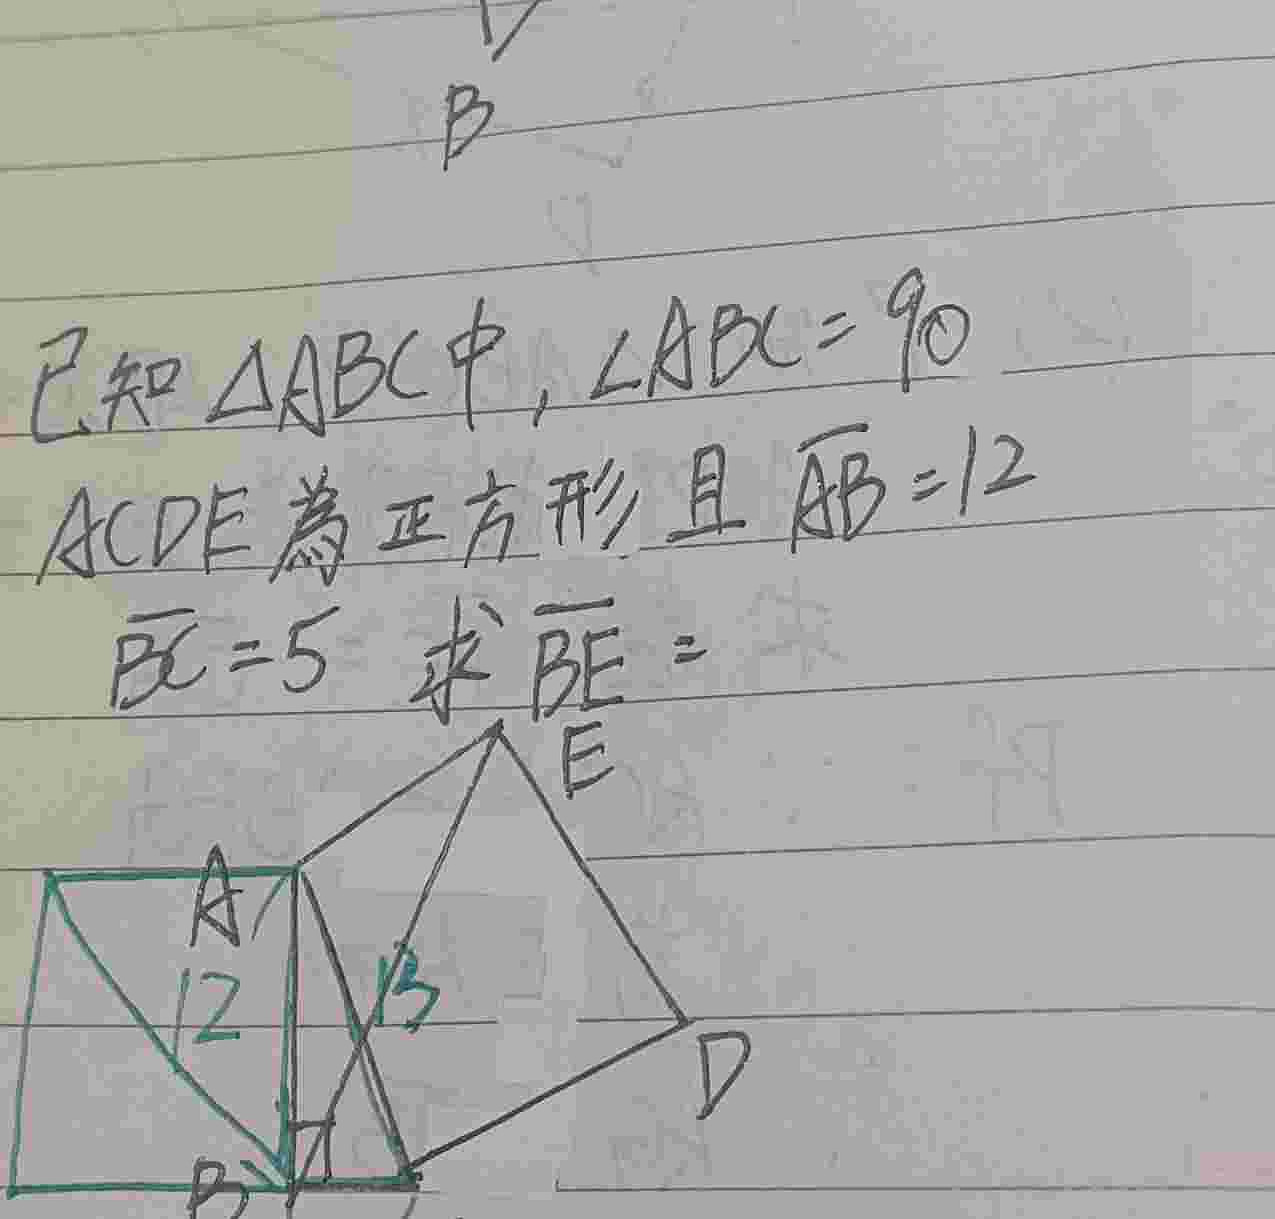 B
已知 △ABC中, ∠ABC = 90
ACDE 為正方形 且 AB = 12
BC = 5 求 BE =
E
A
12
13
D
B